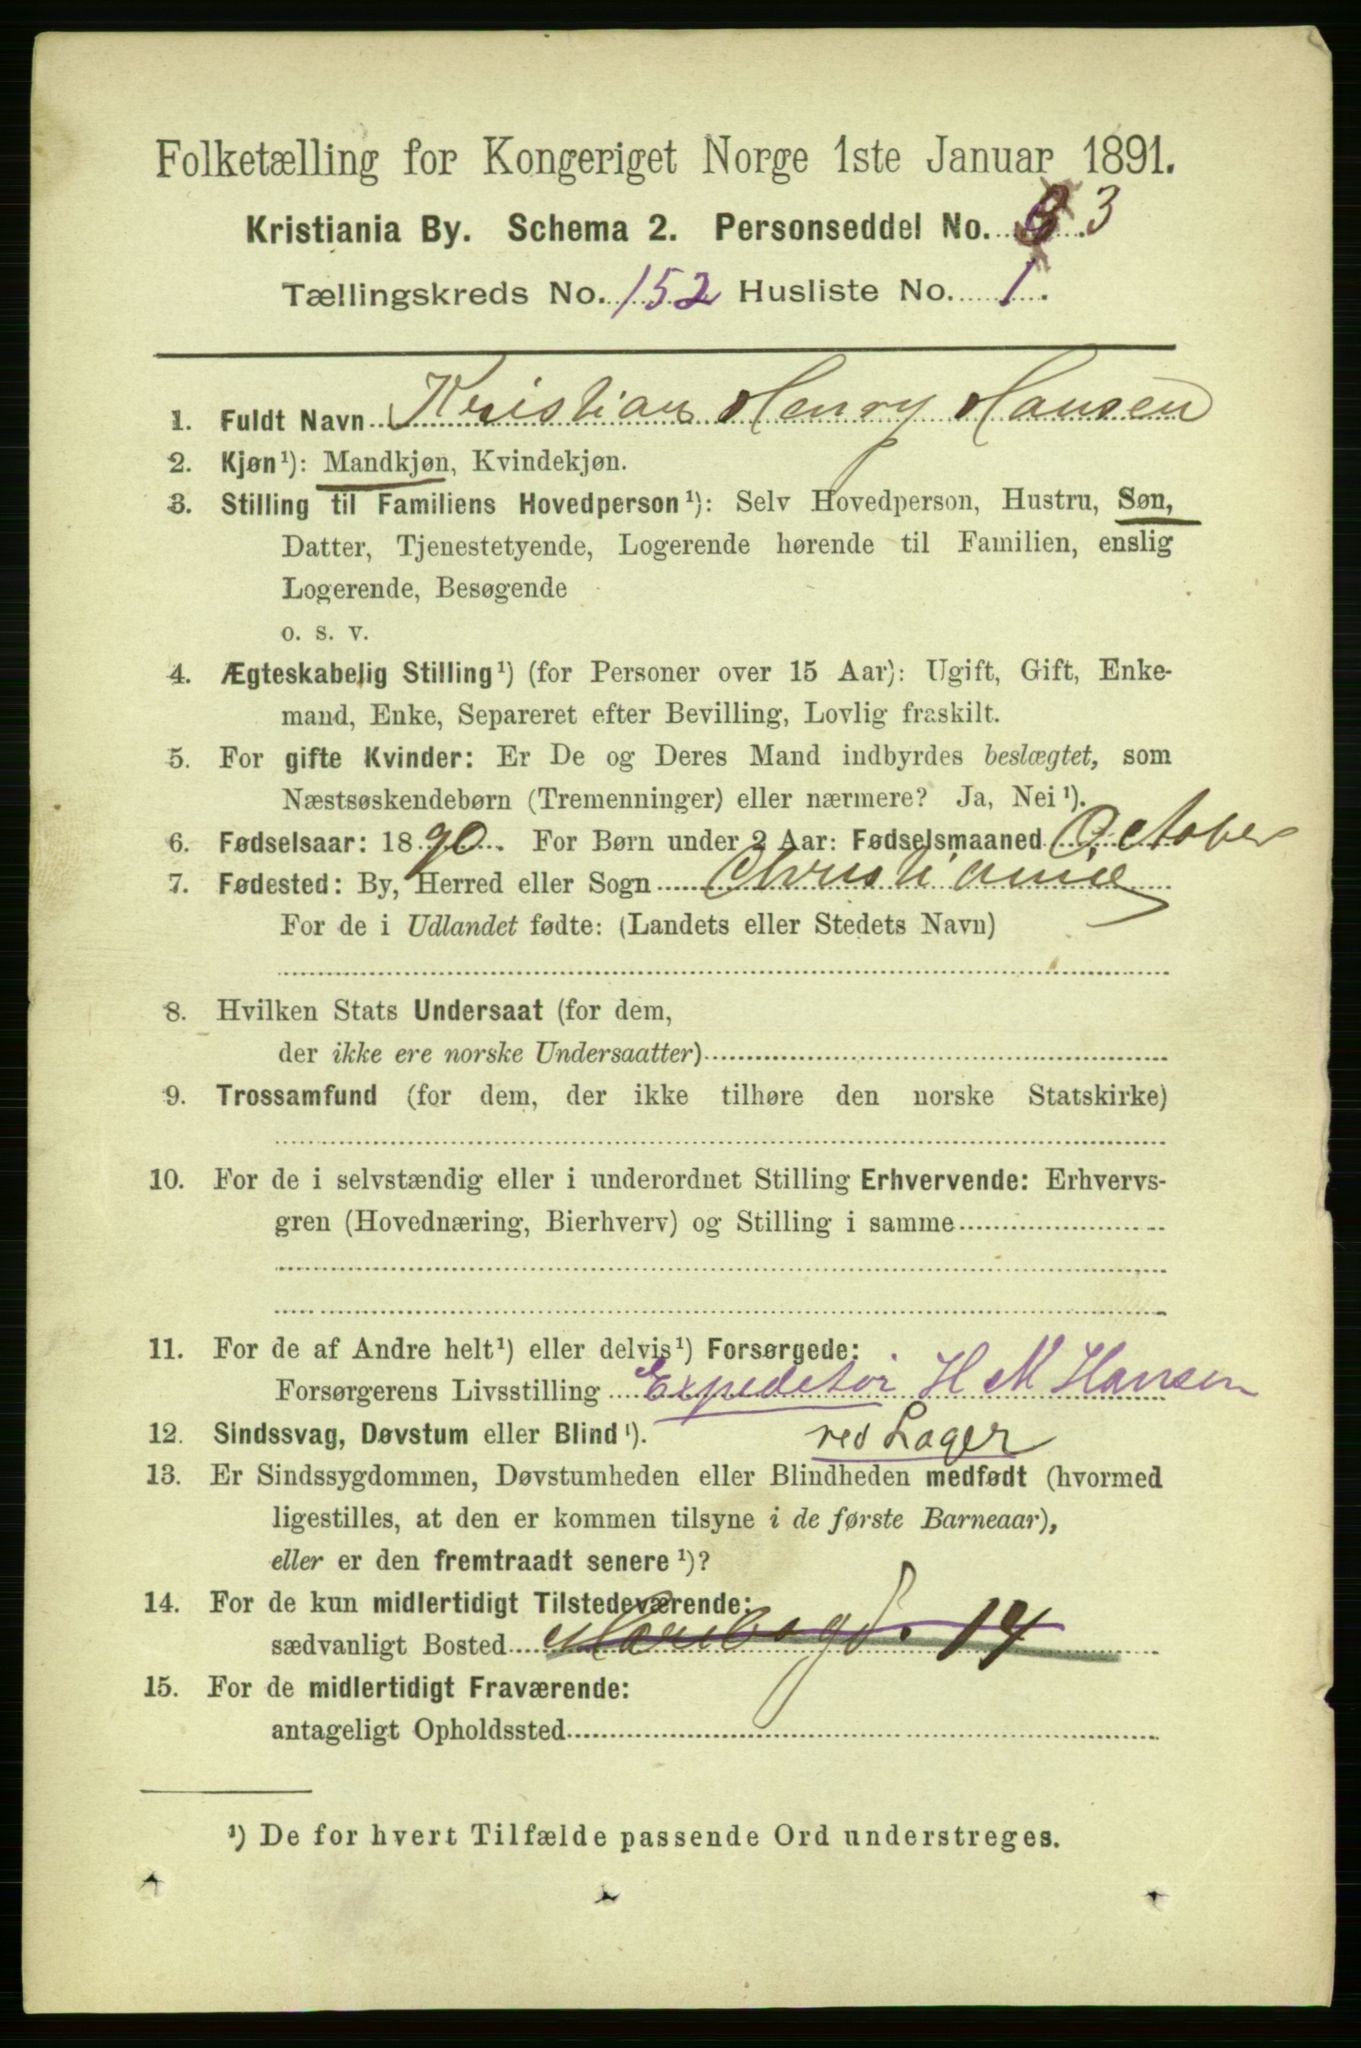 Folketælling for Kongeriget Norge 1ste Januar 1891.
Kristiania By. Schema 2. Personseddel No. 3
Tællingskreds No. 152 Husliste No. 1.
1. Fuldt Navn Kristian Henry Hansen
2. Kjøn¹): Mandkjøn, Kvindekjøn.
3. Stilling til Familiens Hovedperson¹): Selv Hovedperson, Hustru, Søn,
Datter, Tjenestetyende, Logerende hørende til Familien, enslig
Logerende, Besøgende
o. s. v.
4. Ægteskabelig Stilling¹) (for Personer over 15 Aar): Ugift, Gift, Enke-
mand, Enke, Separeret efter Bevilling, Lovlig fraskilt.
5. For gifte Kvinder: Er De og Deres Mand indbyrdes beslægtet, som
Næstsøskendebørn (Tremenninger) eller nærmere? Ja, Nei¹).
6. Fødselsaar: 1890. For Børn under 2 Aar: Fødselsmaaned October
7. Fødested: By, Herred eller Sogn Christiania
For de i Udlandet fødte: (Landets eller Stedets Navn)
8. Hvilken Stats Undersaat (for dem,
der ikke ere norske Undersaatter)
9. Trossamfund (for dem, der ikke tilhøre den norske Statskirke)
10. For de i selvstændig eller i underordnet Stilling Erhvervende: Erhvervs-
gren (Hovednæring, Bierhverv) og Stilling i samme
11. For de af Andre helt¹) eller delvis¹) Forsørgede:
Forsørgerens Livsstilling Expeditør H M Hansen
ved Lager
12. Sindssvag, Døvstum eller Blind¹).
13. Er Sindssygdommen, Døvstumheden eller Blindheden medfødt (hvormed
ligestilles, at den er kommen tilsyne i de første Barneaar),
eller er den fremtraadt senere¹)?
14. For de kun midlertidigt Tilstedeværende:
sædvanligt Bosted 14
15. For de midlertidigt Fraværende:
antageligt Opholdssted
¹) De for hvert Tilfælde passende Ord understreges.